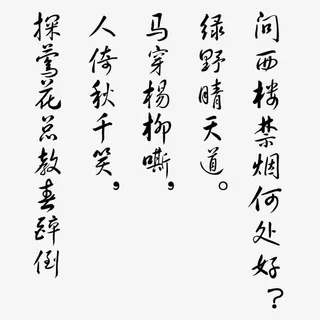 问西楼禁烟何处好？
绿野晴天道。
马穿杨柳嘶，
人倚秋千笑，
探莺花总教春醉倒